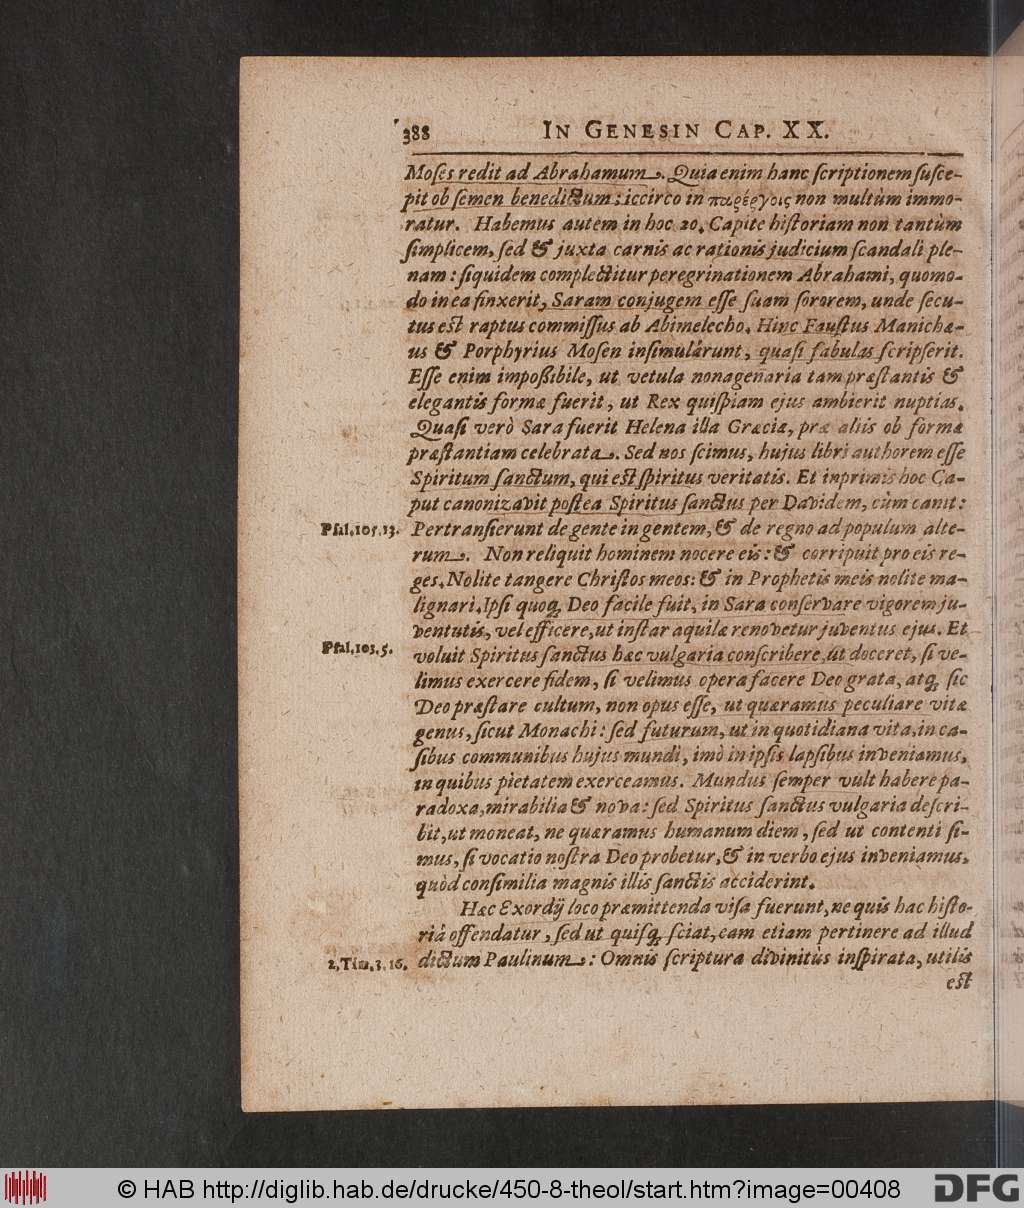 388 IN GENESIN CAP. XX.
Moſes redit ad Abrahamum. Quia enim hanc ſcriptionem ſuſce-
pit ob ſemen benedictum: iccirco in παρέργοις non multùm immo-
ratur. Habemus autem in hoc 20. Capite hiſtoriam non tantùm
ſimplicem, ſed & juxta carnis ac rationis judicium ſcandali ple-
nam: ſiquidem complectitur peregrinationem Abrahami, quomo-
do in ea finxerit, Saram conjugem eſſe ſuam ſororem, unde ſecu-
tus eſt raptus commiſſus ab Abimelecho. Hinc Fauſtus Manichæ-
us & Porphyrius Moſen inſimulârunt, quaſi fabulas ſcripſerit.
Eſſe enim impoßibile, ut vetula nonagenaria tam præſtantis &
elegantis formæ fuerit, ut Rex quiſpiam ejus ambierit nuptias.
Quaſi verò Sara fuerit Helena illa Græcia, præ aliis ob formæ
præſtantiam celebrata. Sed nos ſcimus, hujus libri authorem eſſe
Spiritum ſanctum, qui eſt ſpiritus veritatis. Et inprimis hoc Ca-
put canonizavit poſtea Spiritus ſanctus per Davidem, cùm canit:
Pſal.105.13. Pertranſierunt de gente in gentem, & de regno ad populum alte-
rum. Non reliquit hominem nocere eis: & corripuit pro eis re-
ges. Nolite tangere Chriſtos meos: & in Prophetis meis nolite ma-
lignari. Ipſi quoq; Deo facile fuit, in Sara conſervare vigorem ju-
ventutis, vel efficere, ut inſtar aquilæ renovetur juventus ejus. Et
Pſal.103.5. voluit Spiritus ſanctus hæc vulgaria conſcribere, ut doceret, ſi ve-
limus exercere fidem, ſi velimus opera facere Deo grata, atq; ſic
Deo præſtare cultum, non opus eſſe, ut quæramus peculiare vitæ
genus, ſicut Monachi: ſed futurum, ut in quotidiana vita, in ca-
ſibus communibus hujus mundi, imò in ipſis lapſibus inveniamus,
in quibus pietatem exerceamus. Mundus ſemper vult habere pa-
radoxa, mirabilia & nova: ſed Spiritus ſanctus vulgaria deſcri-
bit, ut moneat, ne quæramus humanum diem, ſed ut contenti ſi-
mus, ſi vocatio noſtra Deo probetur, & in verbo ejus inveniamus,
quòd conſimilia magnis illis ſanctis acciderint.
Hæc Exordij loco præmittenda viſa fuerunt, ne quis hac hiſto-
riâ offendatur, ſed ut quiſq; ſciat, eam etiam pertinere ad illud
2.Tim.3.16. dictum Paulinum: Omnis ſcriptura divinitùs inſpirata, utilis
eſt
© HAB http://diglib.hab.de/drucke/450-8-theol/start.htm?image=00408 DFG